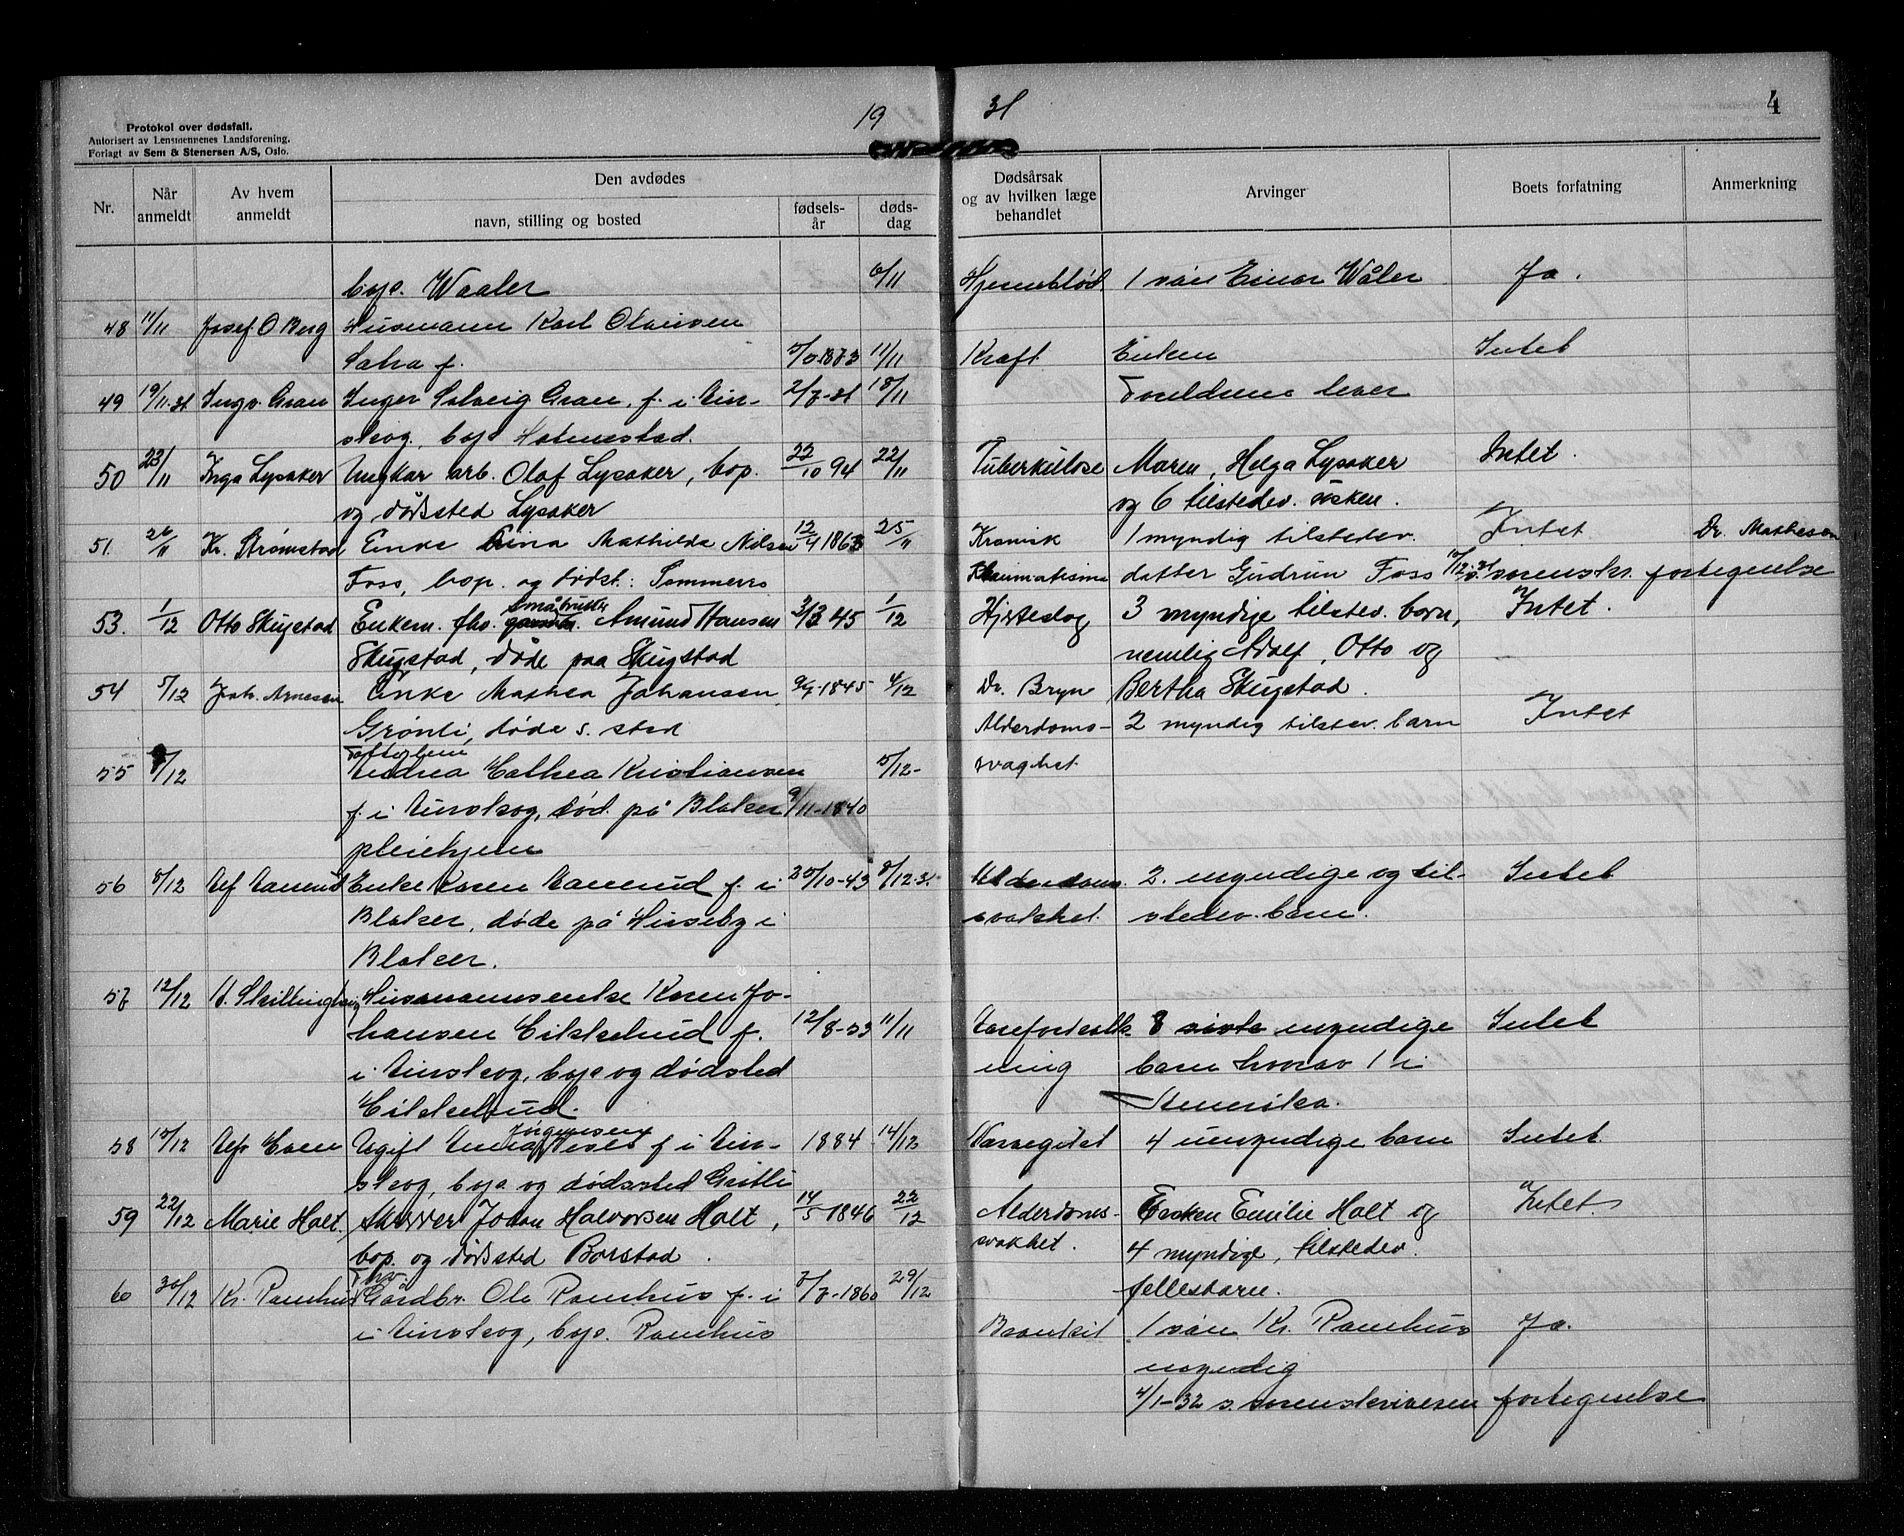 19 31 4
Protokol over dødsfall.
Autorisert av Lensmennenes Landsforening.
Forlagt av Sem & Stenersen A/S, Oslo.
Nr. Når anmeldt Av hvem anmeldt Den avdødes navn, stilling og bosted fødsels-år døds-dag Dødsårsak og av hvilken læge behandlet Arvinger Boets forfatning Anmerkning
bop. Waaler 6/11 Hjerneblød. 1 sön Einar Wåler Ja.
48 11/11 Josef O Berg Husmann Karl Olausen
Saxa f. 1873 11/11 Kræft Enken Intet
49 19/11-31 Ingv. Gran Inger Solveig Gran, f. i Aur- 2/7-31 18/11 Foreldrene lever
skog, bop.
50 23/11 Inga Lysaker Ungkar arb. Olaf Lysaker, bop. 22/10 94 22/11 Tuberkulose Maren, Helga Lysaker Intet.
og dødssted Lysaker og 6 tilstedev. søsken.
51. 26/11 Kr. Strømstad Enke Mathilde Nilsen 12/4 1863 25/11 Kronisk 1 myndig tilstedev. Intet Dr. Mathesen
Foss, bop. og dødst.: Sommerro datter Gudrun Foss 10/12-31 s. sorenskr. fortegnelse
53. 1/12 Otto Skugstad Enkem. fhv. småbruker Amund Hansen 3/3 45 1/12 Hjerteslag 3 myndige tilstev. barn, Intet.
Skugstad, døde paa Skugstad nemlig Adolf, Otto og
54 5/12 Joh. Arnesen Enke Mathea Johansen 1845 4/12 Dr. Bryn Bertha Skugstad.
Grønli, døde s. sted Alderdoms- 2 myndig tilstev. barn Intet
55 9/12 Andrea Cathea Kristiansen 5/12- svaghet
f. i Aurskog, død på Blaker 9/11-1840
pleiehjem
56 8/12 Enke Karen f. i 25/10-43 8/12-31 Alderdoms. 2. myndige og til- Intet
Blaker, døde på Huseby i svakhet. stedev. barn.
Blaker.
57 12/12 Husmannsenke Karen Jo-
hansen f. 12/8-53 11/11 Aareforkalk- 8 myndige Intet
i Aurskog, bop og dødsted ning barn hvorav 1 i
Amerika.
58 15/12 Ugift Jørgensen f i Aur- 1884 14/12 4 umyndige barn Intet
skog, bop. og dødssted
59 22/12 Marie Holt. Johan Halvorsen Holt, 14/5 1846 22/12 Alderdoms- Enken Emilie Holt og Intet.
bop. og dødssted Borstad. svakhet. 4 myndige, tilstedev.
60 30/12 Kr. Ramhus Fhv. Gårdbr. Ole Ramhus f. i 1860 29/12 fellesbarn.
i Aurskog, bop. Ramhus 1 sön Kr. Ramhus Ja.
myndig
4/1-32 s. sorenskriveren fortegnelse